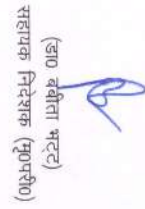 (डा० बबीता भट्ट)
सहायक निदेशक (मू०परी०)